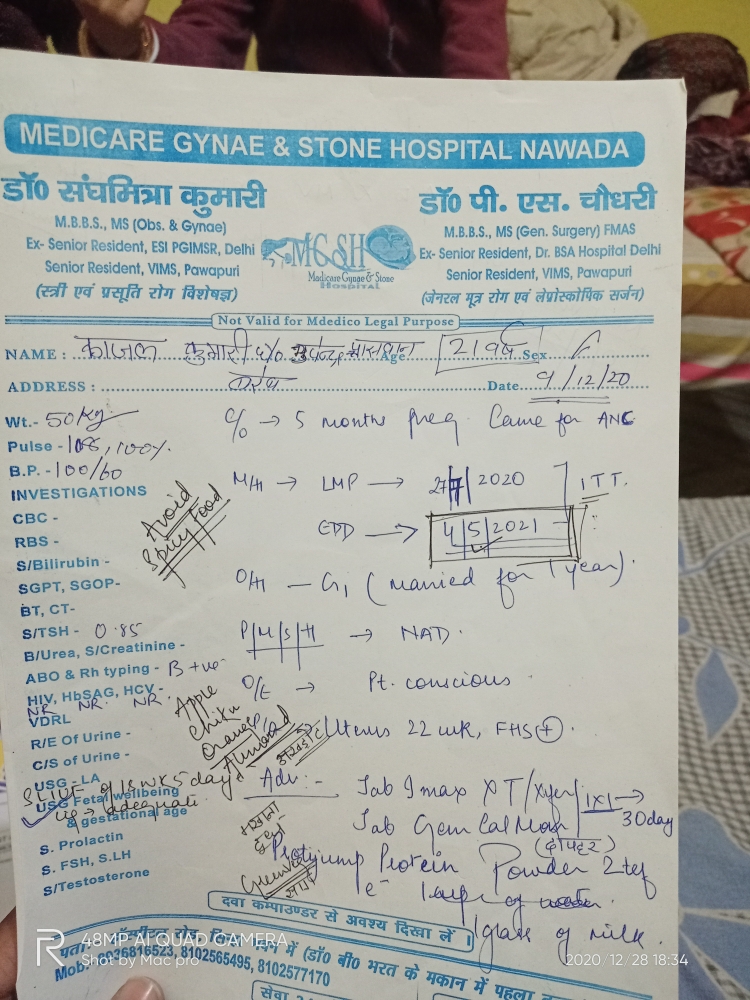 MEDICARE GYNAE & STONE HOSPITAL NAWADA
डॉ0 संघमित्रा कुमारी
M.B.B.S., MS (Obs. & Gynae)
Ex- Senior Resident, ESI PGIMSR, Delhi
Senior Resident, VIMS, Pawapuri
(स्त्री एवं प्रसूति रोग विशेषज्ञ)
MGSH
Medicare Gynae & Stone
HOSPITAL
डॉ0 पी. एस. चौधरी
M.B.B.S., MS (Gen. Surgery) FMAS
Ex- Senior Resident, Dr. BSA Hospital Delhi
Senior Resident, VIMS, Pawapuri
(जेनरल मूत्र रोग एवं लेप्रोस्कोपिक सर्जन)
Not Valid for Mdedico Legal Purpose
NAME : काजल कुमारी Age 21 वर्ष Sex F
ADDRESS : Date 9/12/20
Wt.- 50 kg
Pulse - 100%
B.P. - 100/60
C/o → 5 months preg. Came for ANC
M/H → LMP → 27/7/2020 TT.
EDD → 4/5/2021
O/H — G1 (married for 1 year).
P/M/S/H → NAD.
O/E → Pt. conscious
P/A Uterus 22 wk, FHS +
Avoid
Spicy Food
INVESTIGATIONS
CBC -
RBS -
S/Bilirubin -
SGPT, SGOP-
BT, CT-
S/TSH - 0.85
B/Urea, S/Creatinine -
ABO & Rh typing - B +ve
HIV, HbSAG, HCV -
NR NR. NR.
VDRL
R/E Of Urine -
C/S of Urine -
USG - LA
SLIUF of 18 wk 5 day
USG Fetal wellbeing
& gestational age
adequate
S. Prolactin
S. FSH, S.LH
S/Testosterone
Apple
Chiku
Orange
Almond
Adv:- Tab Imax XT 1x1 →
Tab Gemcal Mom 30day
(दोपहर)
Protijump Protein Powder 2tsf
1 glass of milk.
दवा कम्पाउण्डर से अवश्य दिखा लें ।
में (डॉ0 बी0 भरत के मकान में पहला
Mob. 8102565495, 8102577170
48MP AI QUAD CAMERA
Shot by Mac pro
2020/12/28 18:34